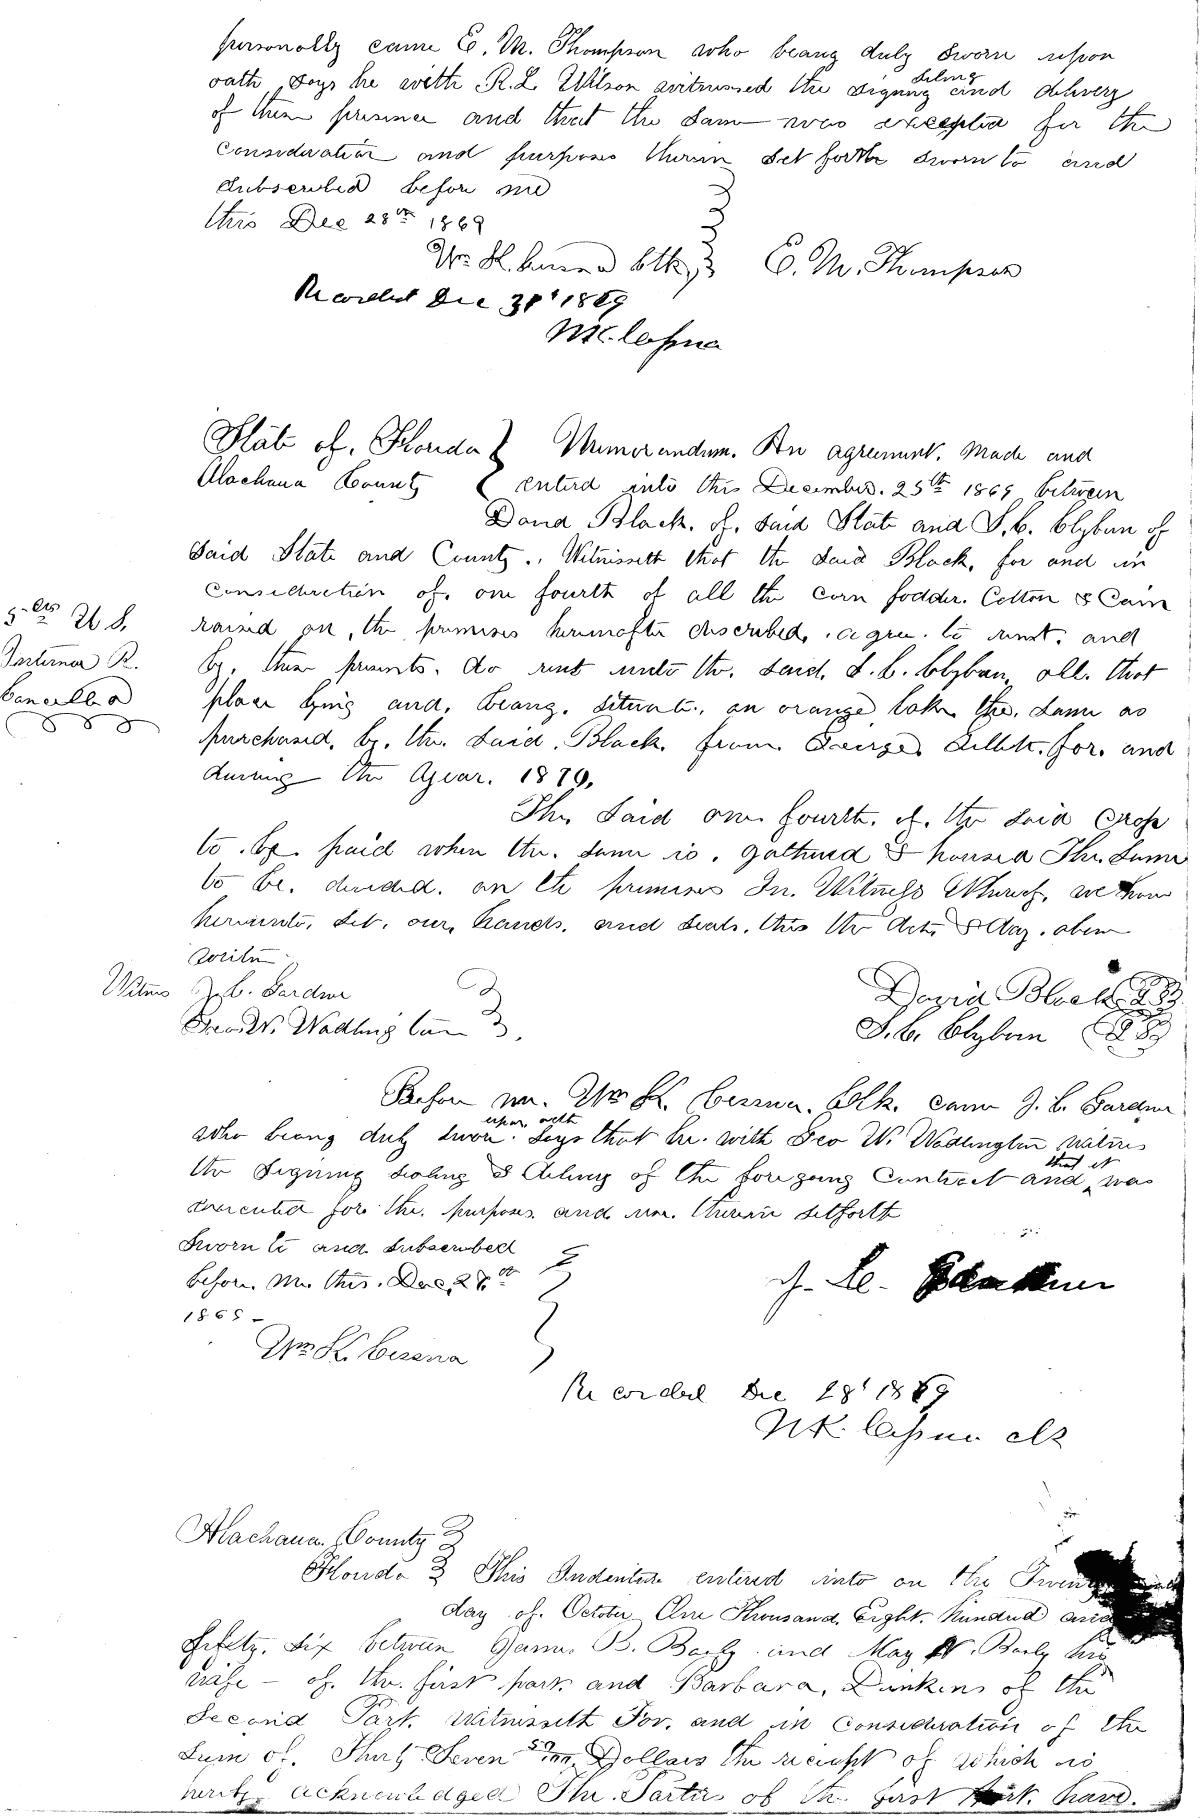 personally came E. M. Thompson who beang duly sworn upon
oath says he with R. L. Wilson witnessed the signing sealing and delivery
of these presence and that the same was excepted for the
consideration and purposes therein set forth sworn to and
subscribed before me
this Dec 28th 1869
Wm K. Cessna Clk, E. M. Thompson
Recorded Dec 31st 1869
WK. Cessna
State of. Florida Memorandum. An agreement. made and
Alachua County enterd into this December. 25th 1869 between
David Black. of. said State and S. C. Clyburn of
said State and County., Witnesseth that the said Black, for and in
consideration of. one fourth of all the corn fodder. Cotton & Cain
raised on, the premises hereinafter discribed, agree. to rent. and
by. these presents. do rent unto the. said. S. C. Clyburn, all. that
place lying and. beang. situate. on orange lake the. same as
purchased. by. the. said. Black. from. George for. and
during the Year. 1870.
The. said one fourth. of. the said crop
to. be. paid when the. same is. gathered & housed The. same
to be. divided. on the premises In. Witness Whereof. we have
hereunto. set. our. hands. and seals. this the date & day. above
written
Witness J. C. Gardner David Black
Geo. W. Wadlington S. C. Clyburn
Before me. Wm K. Cessna. Clk. came J. C. Gardner
who beang duly sworn. upon oath says that he. with Geo W. Wadlington witness
the signing sealing & delivery of the foregoing Contract and that it was
executed for the. purposes. and use. therein setforth
Sworn to and subscribed
before. me this. Dec, 28th J. C. Gardner
1869 -
Wm K. Cessna
Recorded Dec 28' 1869
WK. Cessna clk
5 - cts U S.
Internal R.
Cancelled
Alachua. County
Florida This Indenture entered into on the
day of. October One Thousand. Eight. hundred and
fifety. six between James. B. Baily and Mary W. Baily his
wife - of. the. first part and Barbara, Dinkins of the
Second Part. Witnesseth For. and in consideration of the
Sum of. Thirty Seven 50/100 Dollars the receipt of which is
hereby. acknowledged The. Parties of the first part. have.